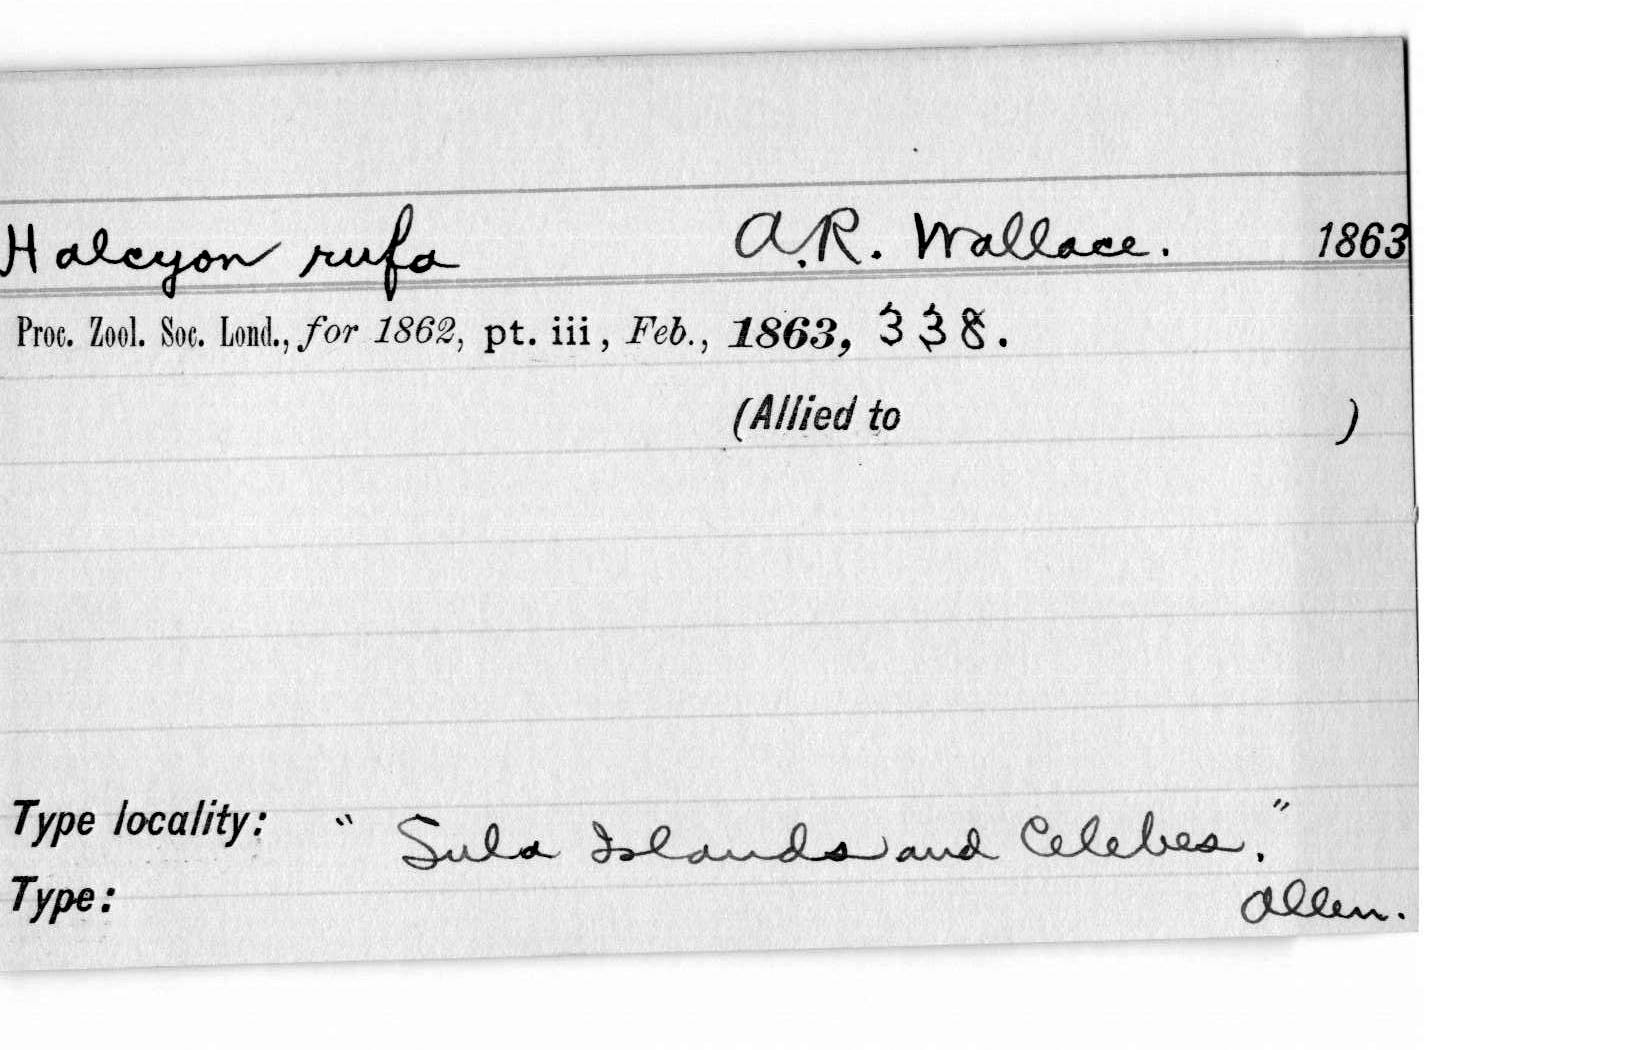 Halcyon rufa A.R. Wallace. 1863
Proc. Zool. Soc. Lond., for 1862, pt. iii, Feb., 1863, 338.
(Allied to )
Type locality: " Sula Islands and Celebes."
Type: Allen.